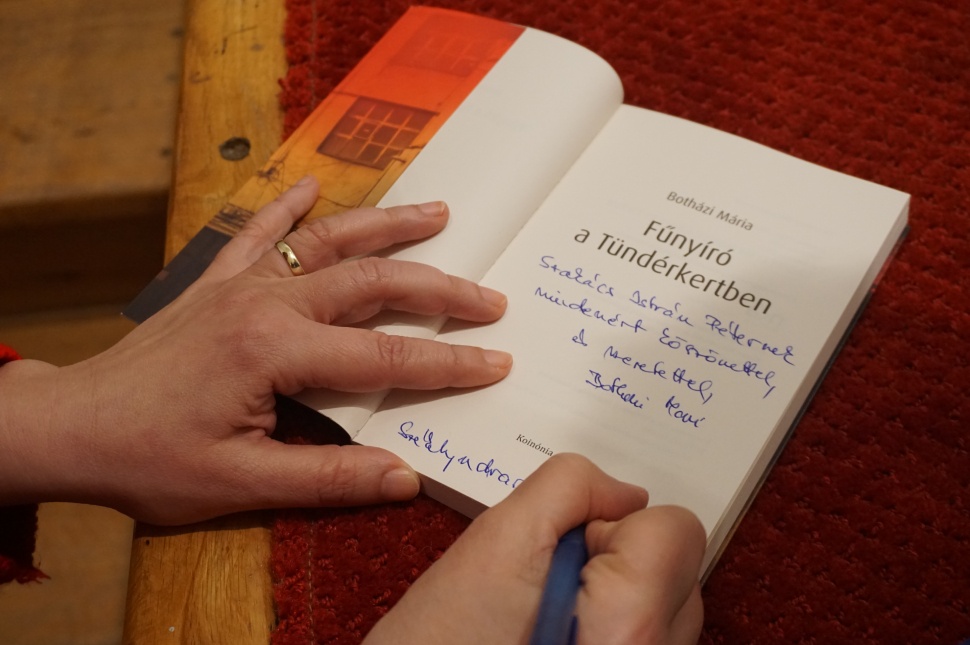 Botházi Mária
Fűnyíró
a Tündérkertben
Szakács István Péternek
mindenért köszönettel,
és szeretettel,
Botházi Mari
Koinónia